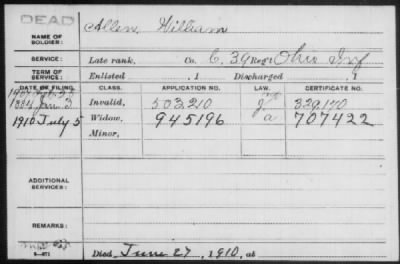 DEAD
Allen, William
NAME OF SOLDIER:
SERVICE: Late rank, Co. C, 39 Reg't Ohio Inf
TERM OF SERVICE: Enlisted , 1 Discharged , 1
DATE OF FILING. CLASS. APPLICATION NO. LAW. CERTIFICATE NO.
1884 Jan 3 Invalid, 503,210 329,170
1910 July 5 Widow, 945196 a 707422
Minor,
ADDITIONAL SERVICES:
REMARKS:
Died June 27, 1910, at